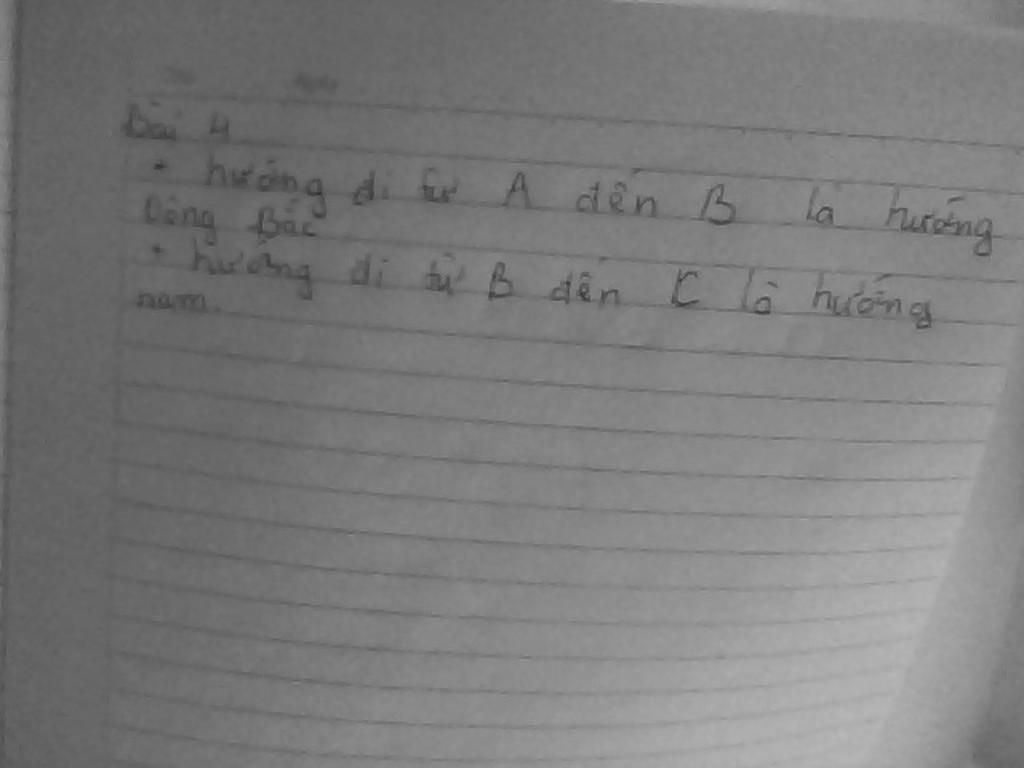 Bài 4
+ hướng đi từ A đến B là hướng
Đông Bắc
+ hướng đi từ B đến C là hướng
nam.